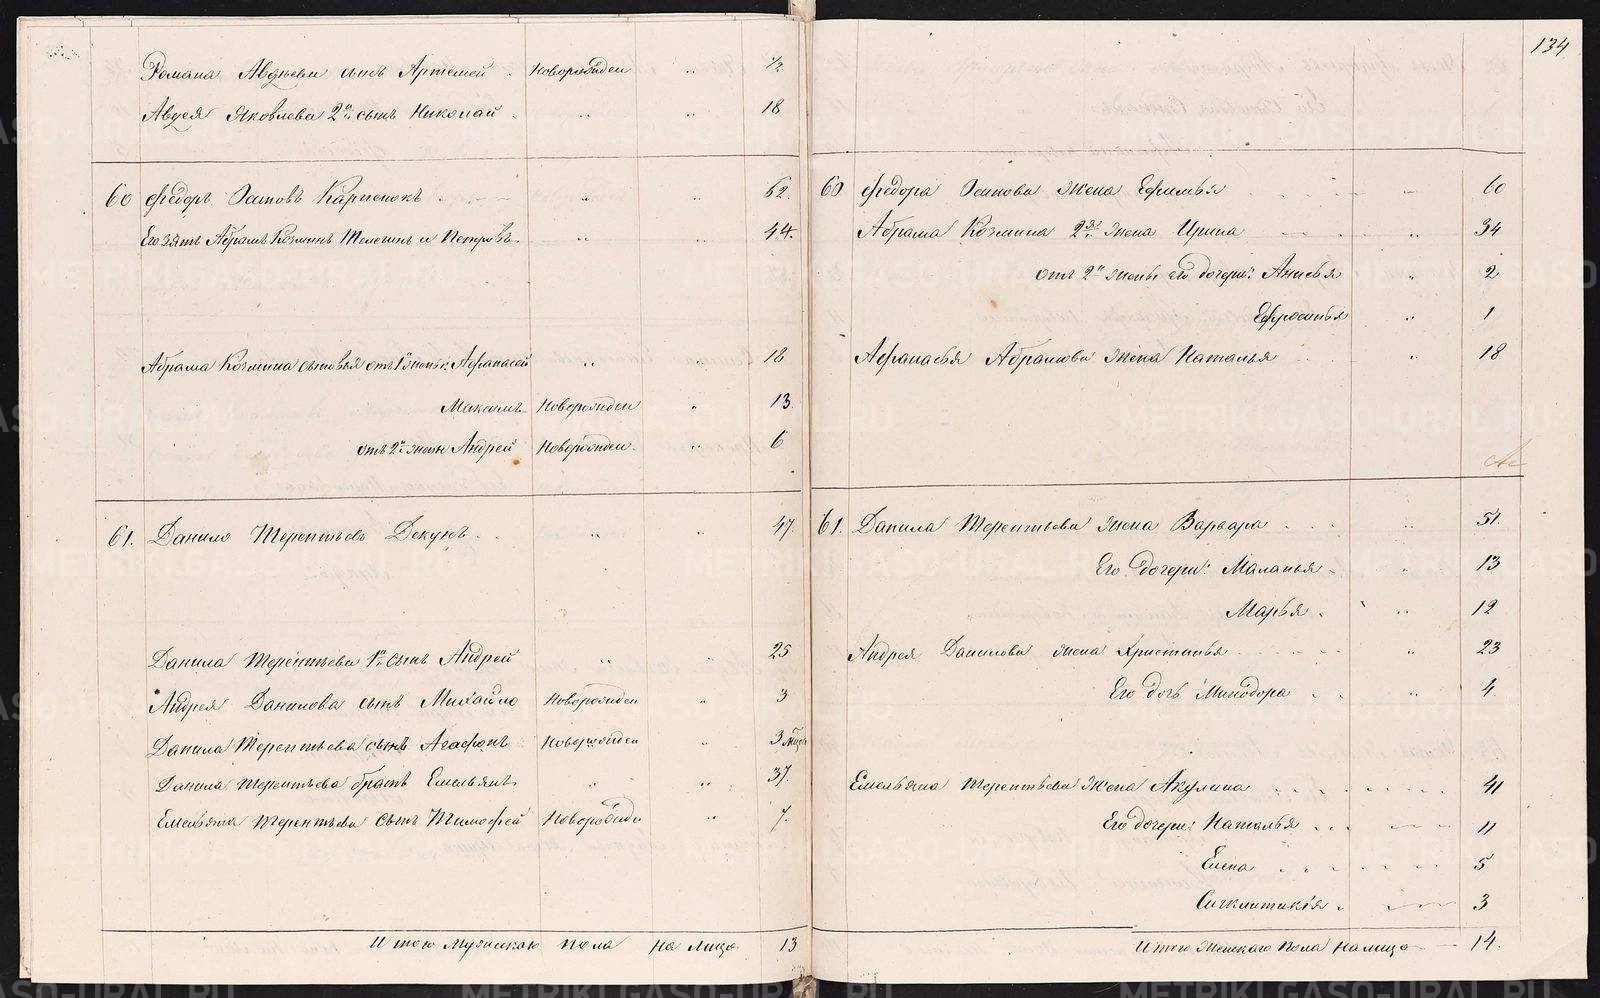 Романа Авдѣева сынъ Артемей Новорожден " ½
Авдея Яковлева 2й сынъ Николай " " 18
60 Федоръ Осиповъ Карпенокъ " " 62
Его зять Абрамъ Козминъ Телегинъ и Петровъ " " 44.
Абрама Козмина сыновья отъ 1й жены: Афанасей " " 18
Максимъ Новорожден " 13
отъ 2й жены Андрей Новорожден " 6
61. Данило Терентьевъ Декунъ " " 47.
Данила Терентьева 1й сынъ Андрей " " 25
Андрея Данилова сынъ Михайло Новорожден " 3
Данила Терентьева сынъ Агафонъ Новорожден " 3 мѣся
Данила Терентьева братъ Емельянъ " " 37.
Емельяна Терентьева сынъ Тимофей Новорожде " 7.
Итого мужскаго пола на лицо 13
134
60 Федора Осипова жена Ефимья " 60
Абрама Козмина 2я жена Ирина " 34
отъ 2й жены его дочери: Анисья " 2
Ефросинья " 1
Афанасья Абрамова жена Наталья " 18
61. Данила Терентьева жена Варвара " 51.
Его дочери: Маланья " 13
Марья " 12
Андрея Данилова жена Христинья " 23
Его дочь Минодора " 4.
Емельяна Терентьева жена Акулина 41
Его дочери: Наталья 11
Елена 5
Сигклитикія 3
Итого женскаго пола на лицо 14.
METRIKI.GASO-URAL.RU